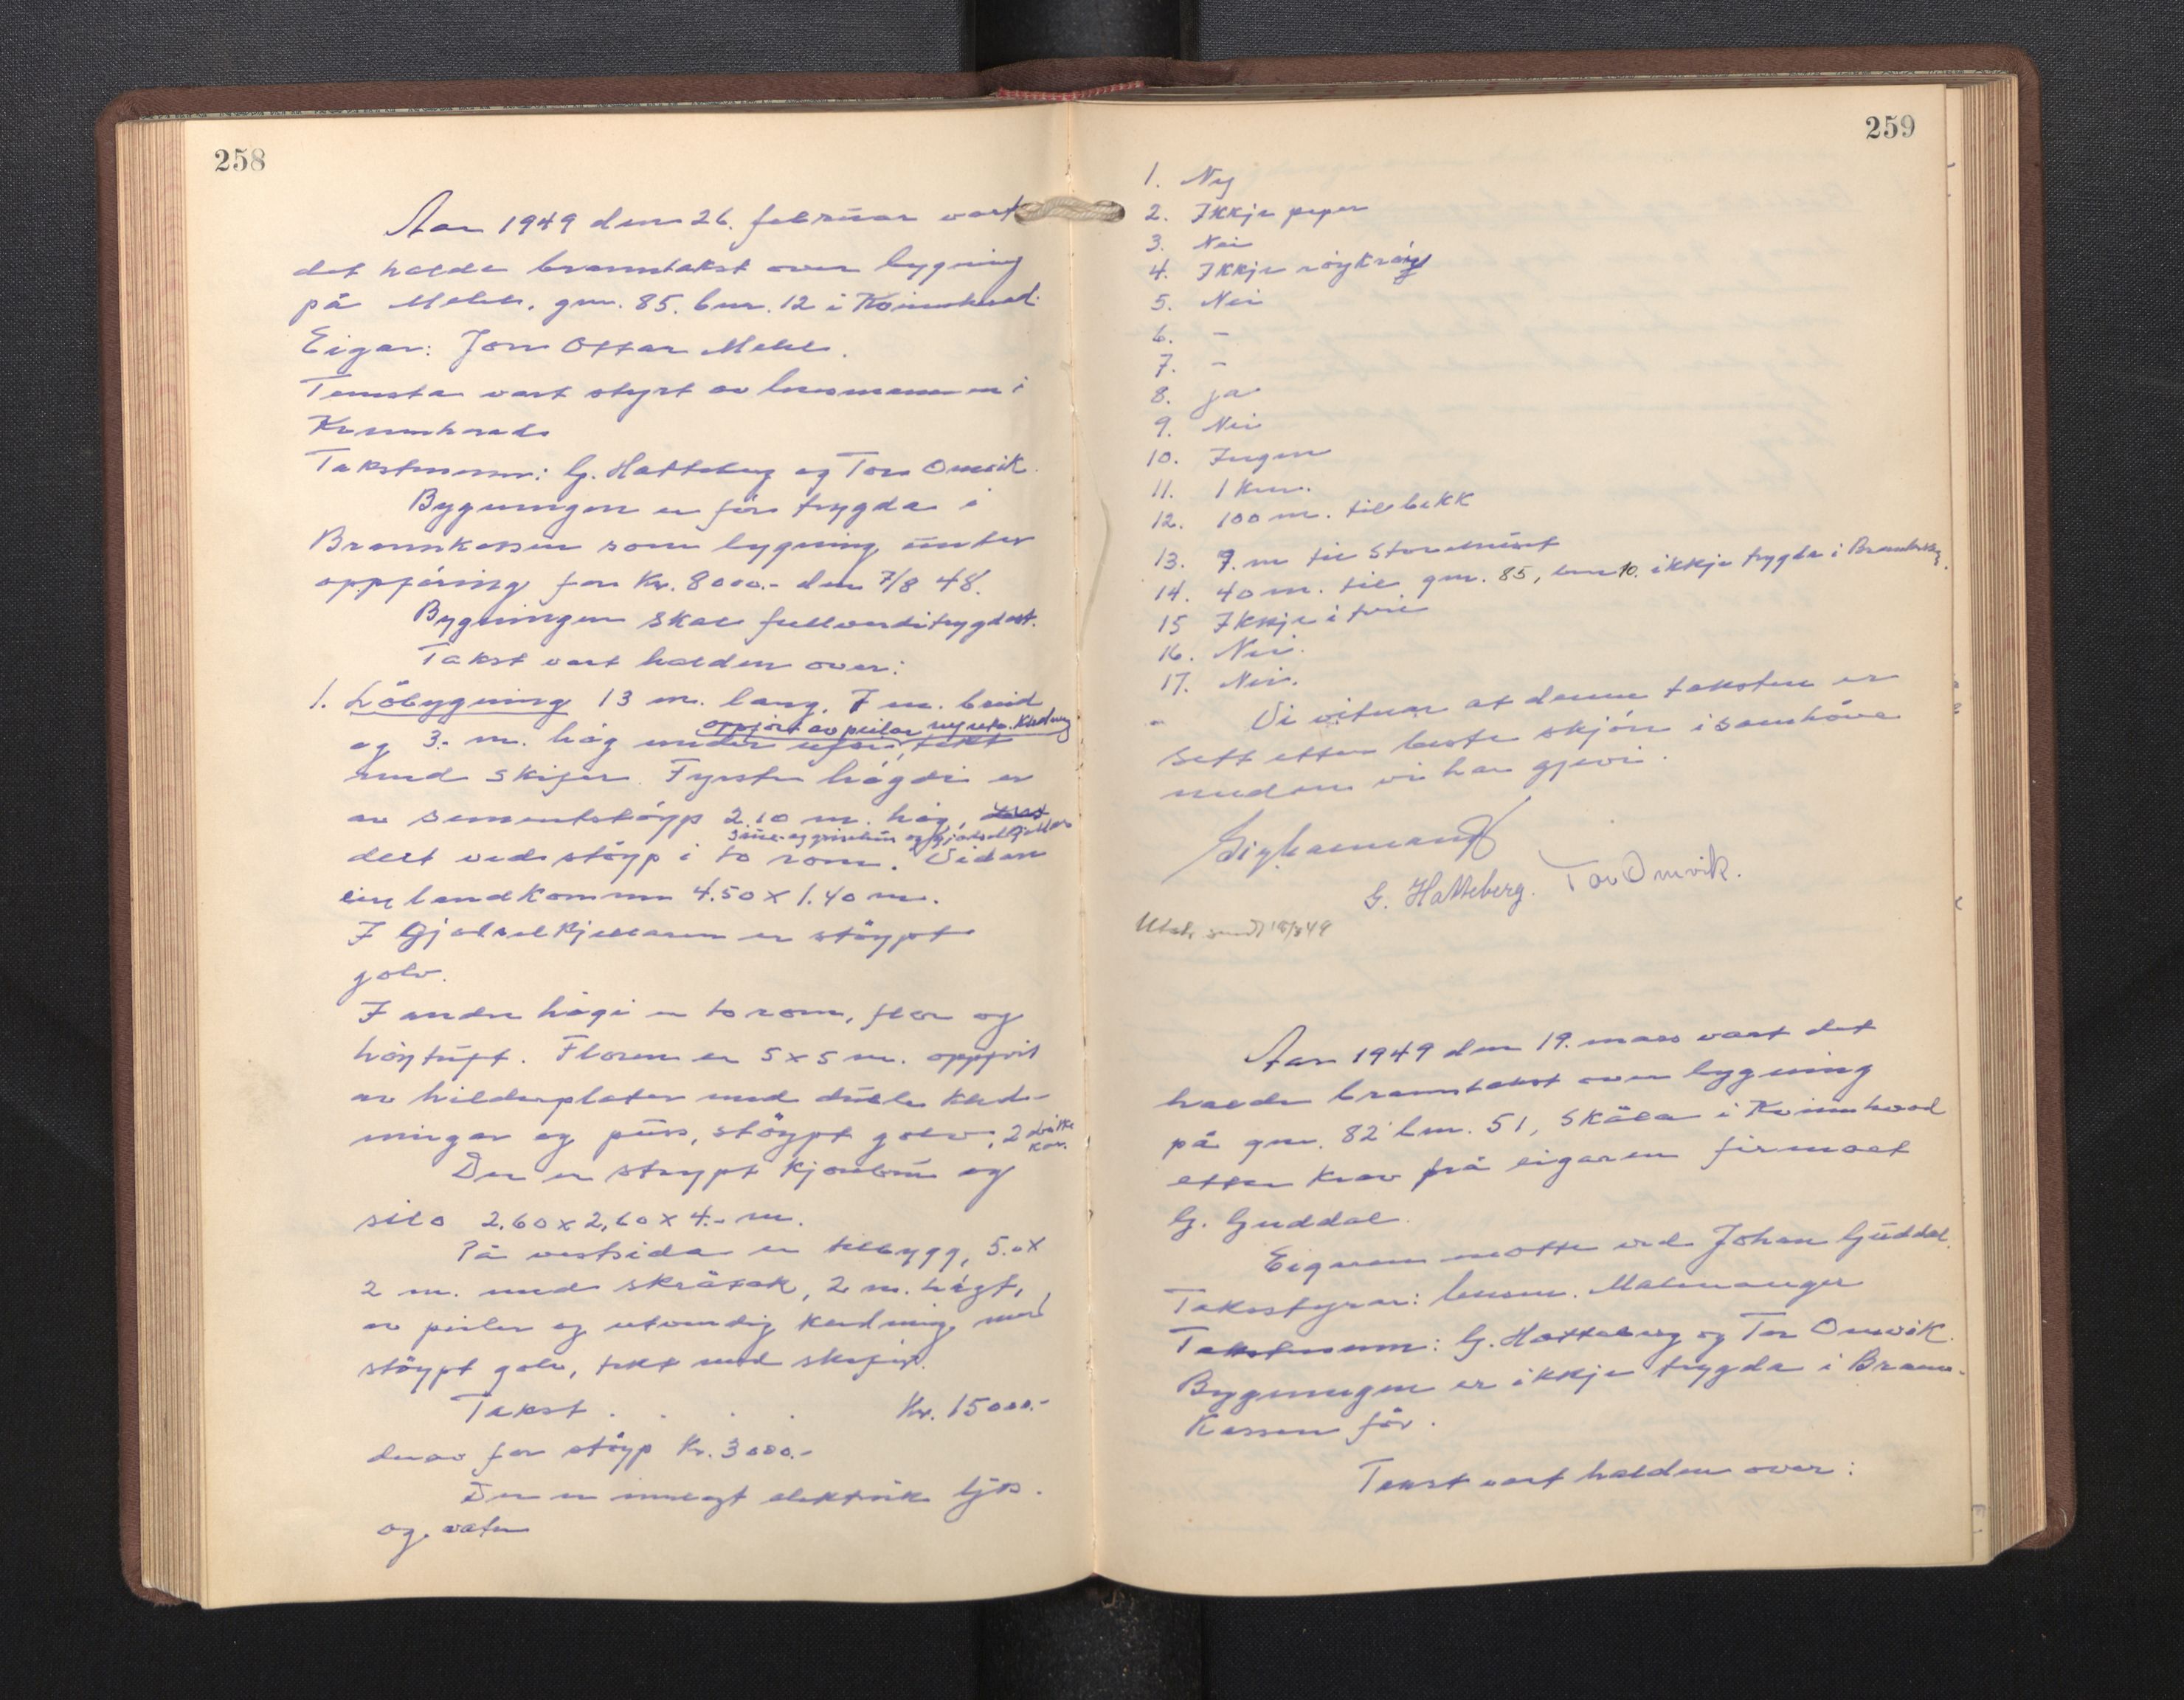 258
Aar 1949 den 26. februar vart
det halde branntakst over bygning
på Mehl, gnr. 85. bnr. 12 i Kvinnherad.
Eigar: Jon Ottar Mehl.
Temsta vart styrt av lensmannen i
Kvinnherad
Takstmenn: G. Hatteberg og Tor Omvik.
Bygningen er før trygda i
Brannkassen som bygning under
oppføring for Kr. 8000.- den 7/8 48.
Bygningen skal fullverditrygdast.
Takst vart halden over:
1. Løbygning 13 m. lang, 7 m. breid
oppført av peilar og utv. kledning
og 3.- m. høg under ufsi, tekt
med skifer. Fyrste høgdi er
av sementstøyp 2.10 m. høg,
saue- og grisehus og gjødselkjeller
delt ved støyp i to rom. Vidare
ein landkommu 4.50 x 1.40 m.
I gjødselkjellaren er støypt
golv.
I andre høgi er to rom, flor og
høytuft. Floren er 5 x 5 m. oppført
av hilderplater med duble kled-
ningar og puss, støypt golv, 2 lufte
kar.
Der er støypt kjørebru og
silo 2.60 x 2.60 x 4.- m.
På vestsida er tilbygg, 5.0 x
2 m. med skråtak, 2 m. høgt,
av peiler og utvendig kledning med
støypt golv, tekt med skifer.
Takst . . . . Kr. 15000.-
derav for støyp Kr. 3000.-
Der er innlagt elektrisk ljos
og vatn
259
1. Ny
2. Ikkje piper
3. Nei
4. Ikkje røykrøyr
5. Nei
6. -
7. -
8. ja
9. Nei
10. Ingen
11. 1 km.
12. 100 m. til bekk
13. 9. m til Storehuset
14. 40 m. til gnr. 85, bnr 10. ikkje trygda i Brannkassa.
15 Ikkje i tvil
16. Nei.
17. Nei.
Vi vitnar at denne taksten er
sett etter beste skjøn i samhøve
medom vi har gjevi.
G. Hatteberg. Tor Omvik.
Utskr. sendt 18/3 49
Aar 1949 den 19. mars vart det
halde branntakst over bygning
på gnr. 82 bnr. 51, Skåla i Kvinnherad
etter krav frå eigaren firmaet
G. Guddal.
Eigaren møtte ved Johan Guddal.
Takststyrar: lensm. Malmanger
Takstmenn: G. Hatteberg og Tor Omvik.
Bygningen er ikkje trygda i Brann-
kassen før.
Takst vart halden over: